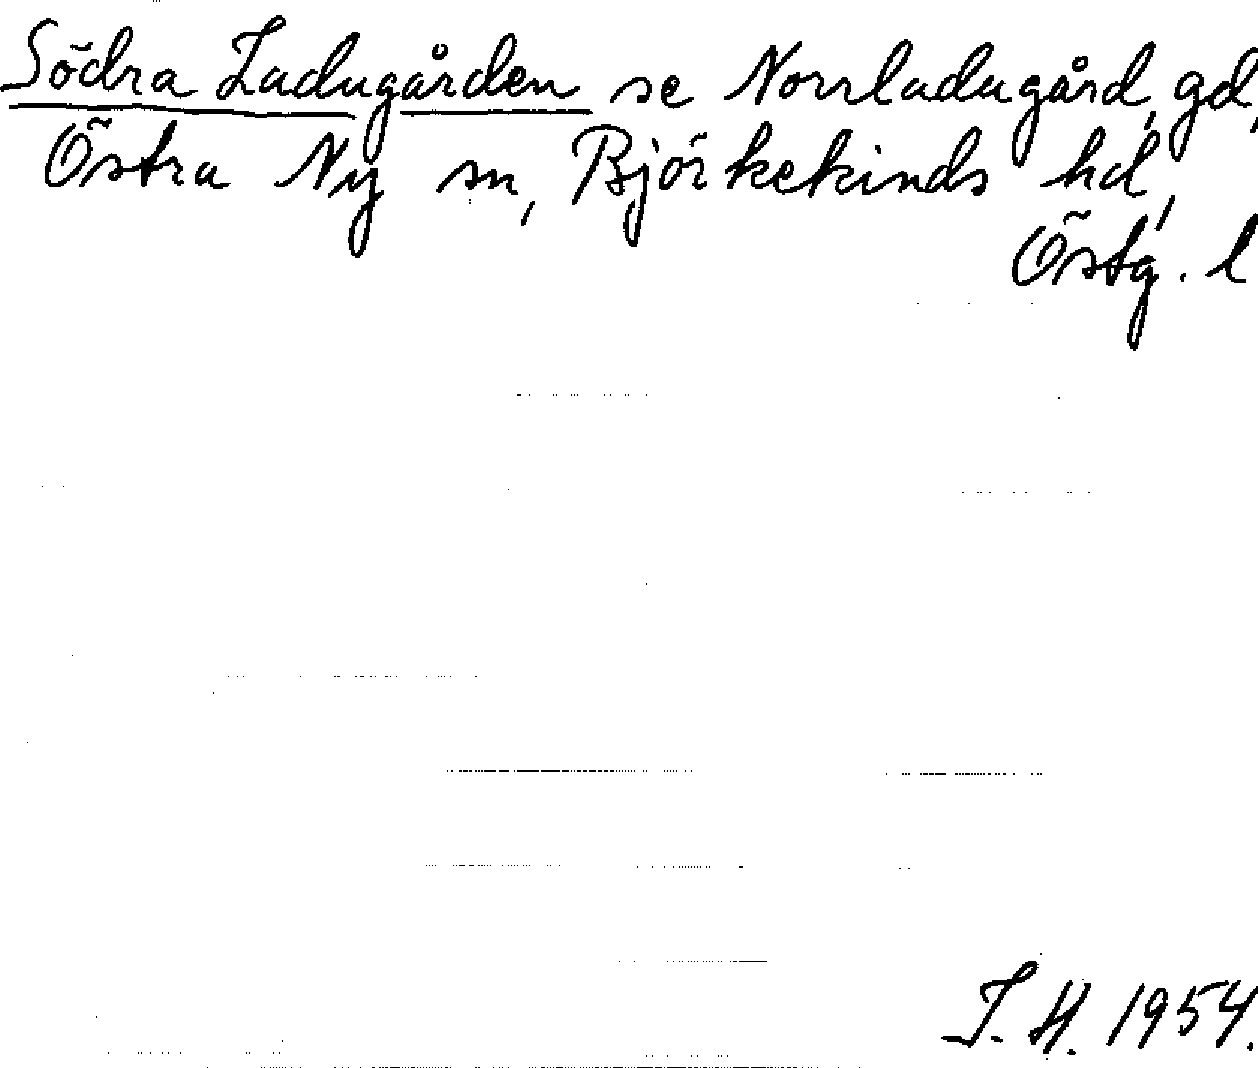 Södra Ladugården se Norrladugård, gd,
Östra Ny sn, Björkekinds hd,
Östg. l
I. H. 1954.